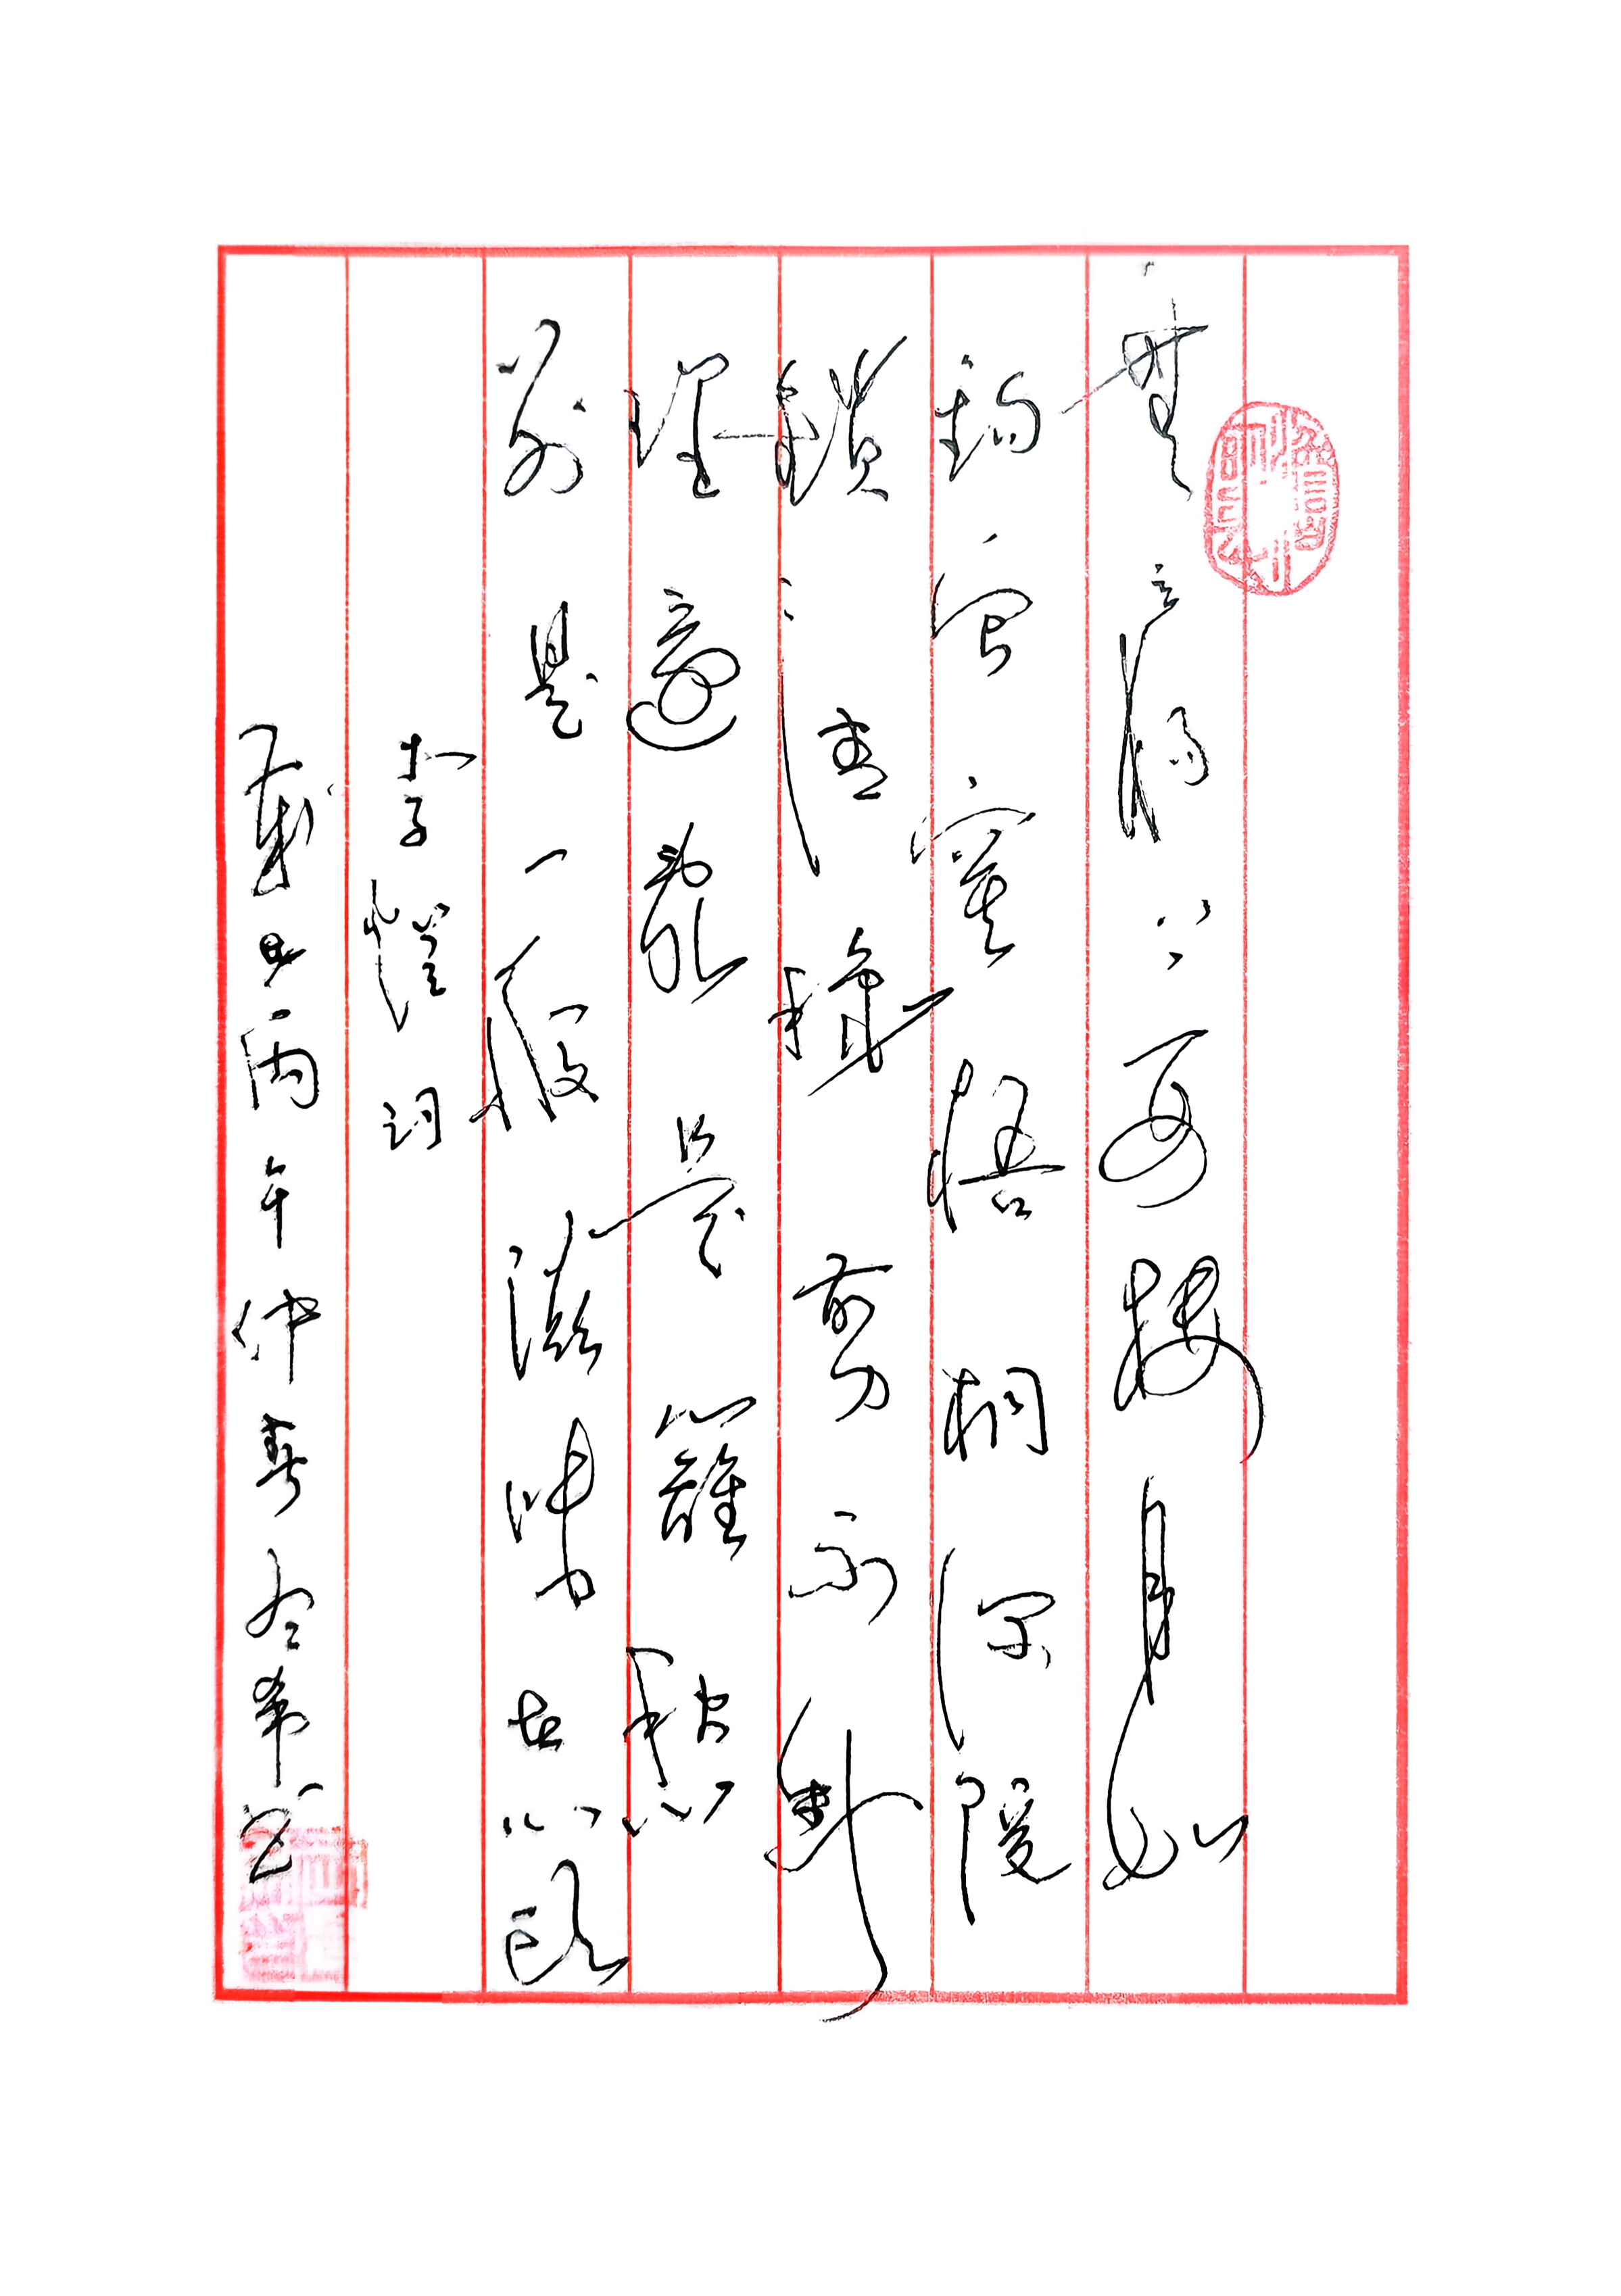 無言獨上西樓月如
鉤寂寞梧桐深院
鎖清秋剪不斷
理還亂是離愁
別是一般滋味在心頭
李煜詞
歲丙午仲春希书